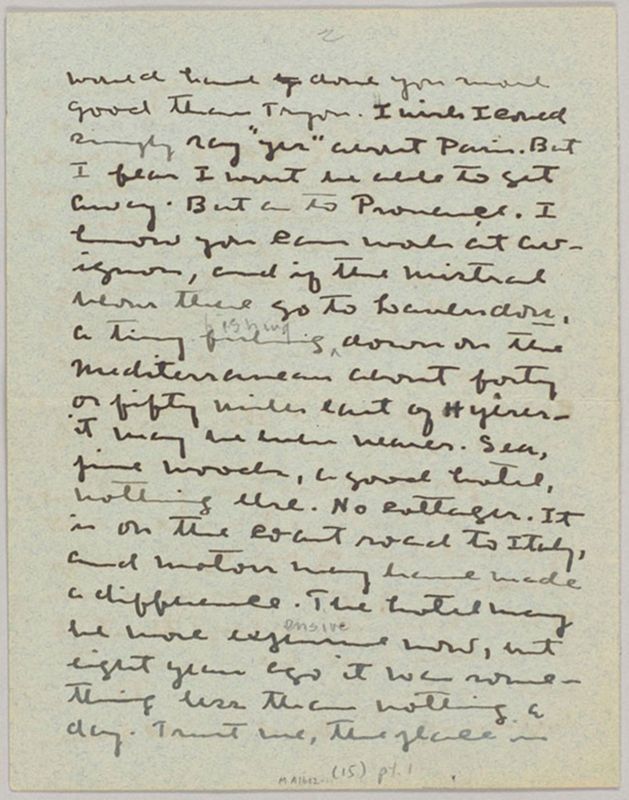 2
would have done you more
good than Tryon. I wish I could
simply say "yes" about Paris. But
I fear I wont be able to get
away. But as to Provence. I
know you can work at Av-
ignon, and if the mistral
blows there go to Lavendou,
a tiny fishing, down on the
fishing
Mediterranean about forty
or fifty miles east of Hyères—
it may be even nearer. Sea,
pine woods, a good hotel,
nothing else. No cottages. It
is on the coast road to Italy,
and motors may have made
a difference. The hotel may
ensive
be more expensive now, but
eight years ago it was some-
thing less than nothing a
day. Trust me, the place is
MA1602 (15) pt. 1